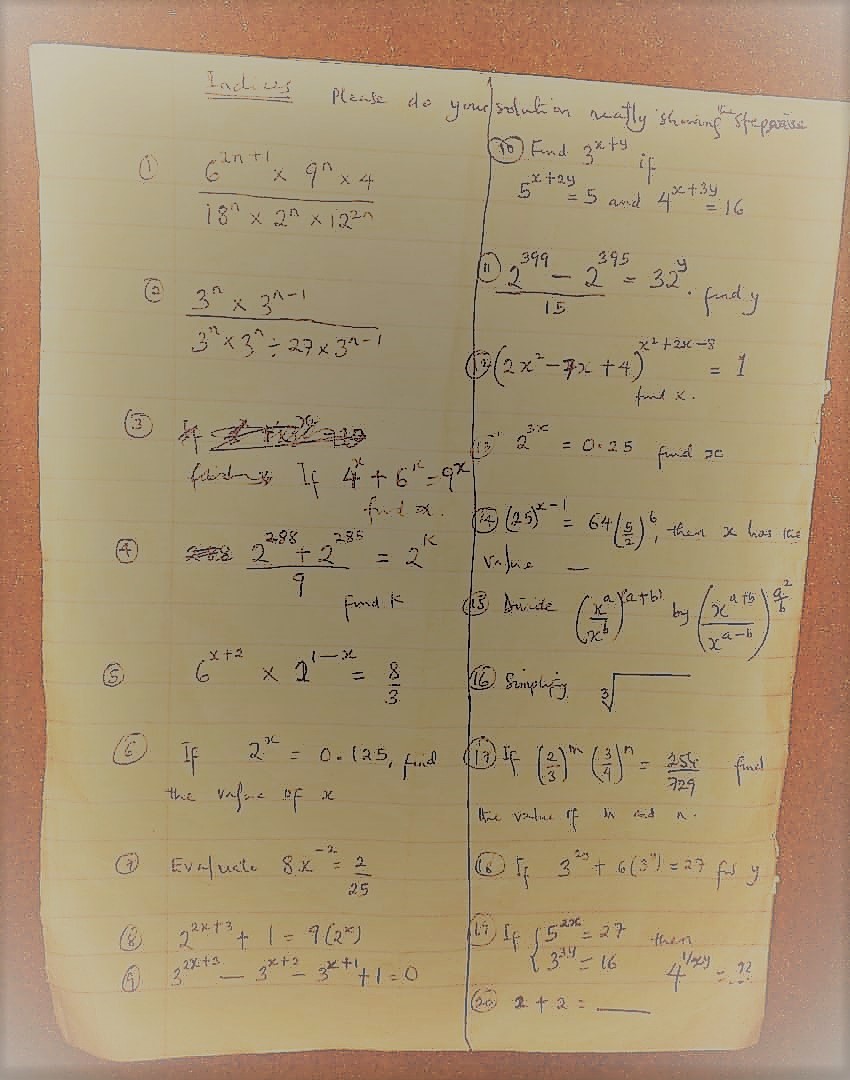 Indices Please do your solution neatly showing the stepwise
① 6^{2n+1} × 9^n × 4 / 18^n × 2^n × 12^{2n}
② 3^n × 3^{n-1} / 3^n × 3^n ÷ 27 × 3^{n-1}
③ If
If 4^x + 6^x = 9^x
find x.
④ 2^{288} + 2^{285} / 9 = 2^k
find k
⑤ 6^{x+2} × 2^{1-x} = 8/3
⑥ If 2^x = 0.125, find
the value of x
⑦ Evaluate 8x^{-2} = 2/25
⑧ 2^{2x+3} + 1 = 9(2^x)
⑨ 3^{2x+3} - 3^{x+2} - 3^{x+1} + 1 = 0
⑩ Find 3^{x+y} if
5^{x+2y} = 5 and 4^{x+3y} = 16
⑪ 2^{399} - 2^{395} / 15 = 32^y. find y
⑫ (2x² - 7x + 4)^{x²+2x-8} = 1
find x.
13 2^{3x} = 0.25 find x
⑭ (25)^{x-1} = 64(5/2)^6, then x has the
value —
⑮ Divide (x^a/x^b)^{(a+b)} by (x^{a+b}/x^{a-b})^{a²/b}
⑯ Simplify ∛
⑰ If (2/3)^m (3/4)^n = /729 find
the value of m and n.
⑱ If 3^{2y} + 6(3^y) = 27 find y
⑲ If { 5^{2x} = 27 then
3^{3y} = 16 4^{1/xy} = ??
⑳ 2 + 2 = ____